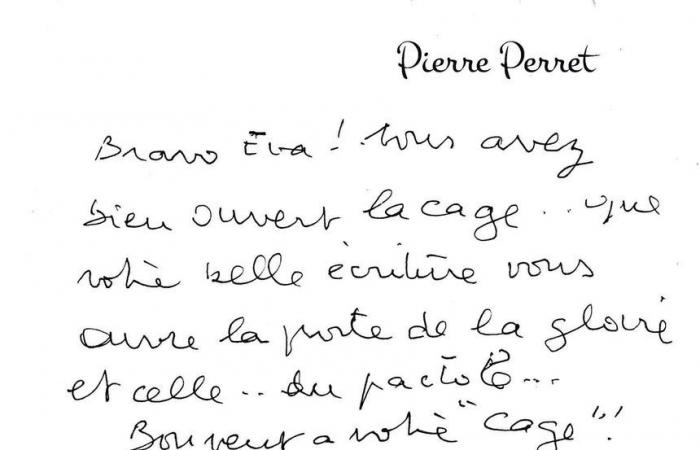 Pierre Perret
Bravo Eva ! Vous avez
bien ouvert la cage... que
votre belle écriture vous
ouvre la porte de la gloire
et celle.. du pactole...
Bon vent a votre "cage"!